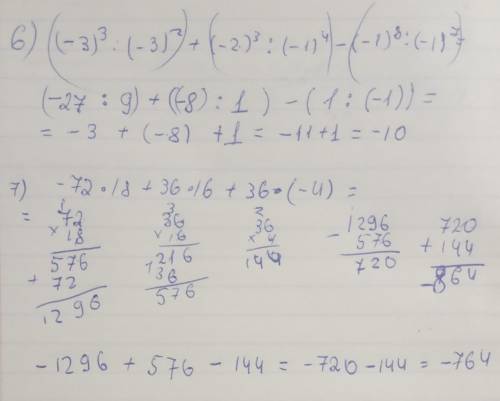 6) ((-3)³ : (-3)²) + ((-2)³ : (-1)⁴) - ((-1)⁸ : (-1)⁷)
(-27 : 9) + ((-8) : 1) - (1 : (-1)) =
= -3 + (-8) + 1 = -11 + 1 = -10
7) -72 · 18 + 36 · 16 + 36 · (-4) =
=
1
72
× 18
576
+ 72
1296
3
36
× 16
216
+ 36
576
2
36
× 4
144
- 1296
576
720
720
+ 144
-864
-1296 + 576 - 144 = -720 - 144 = -764